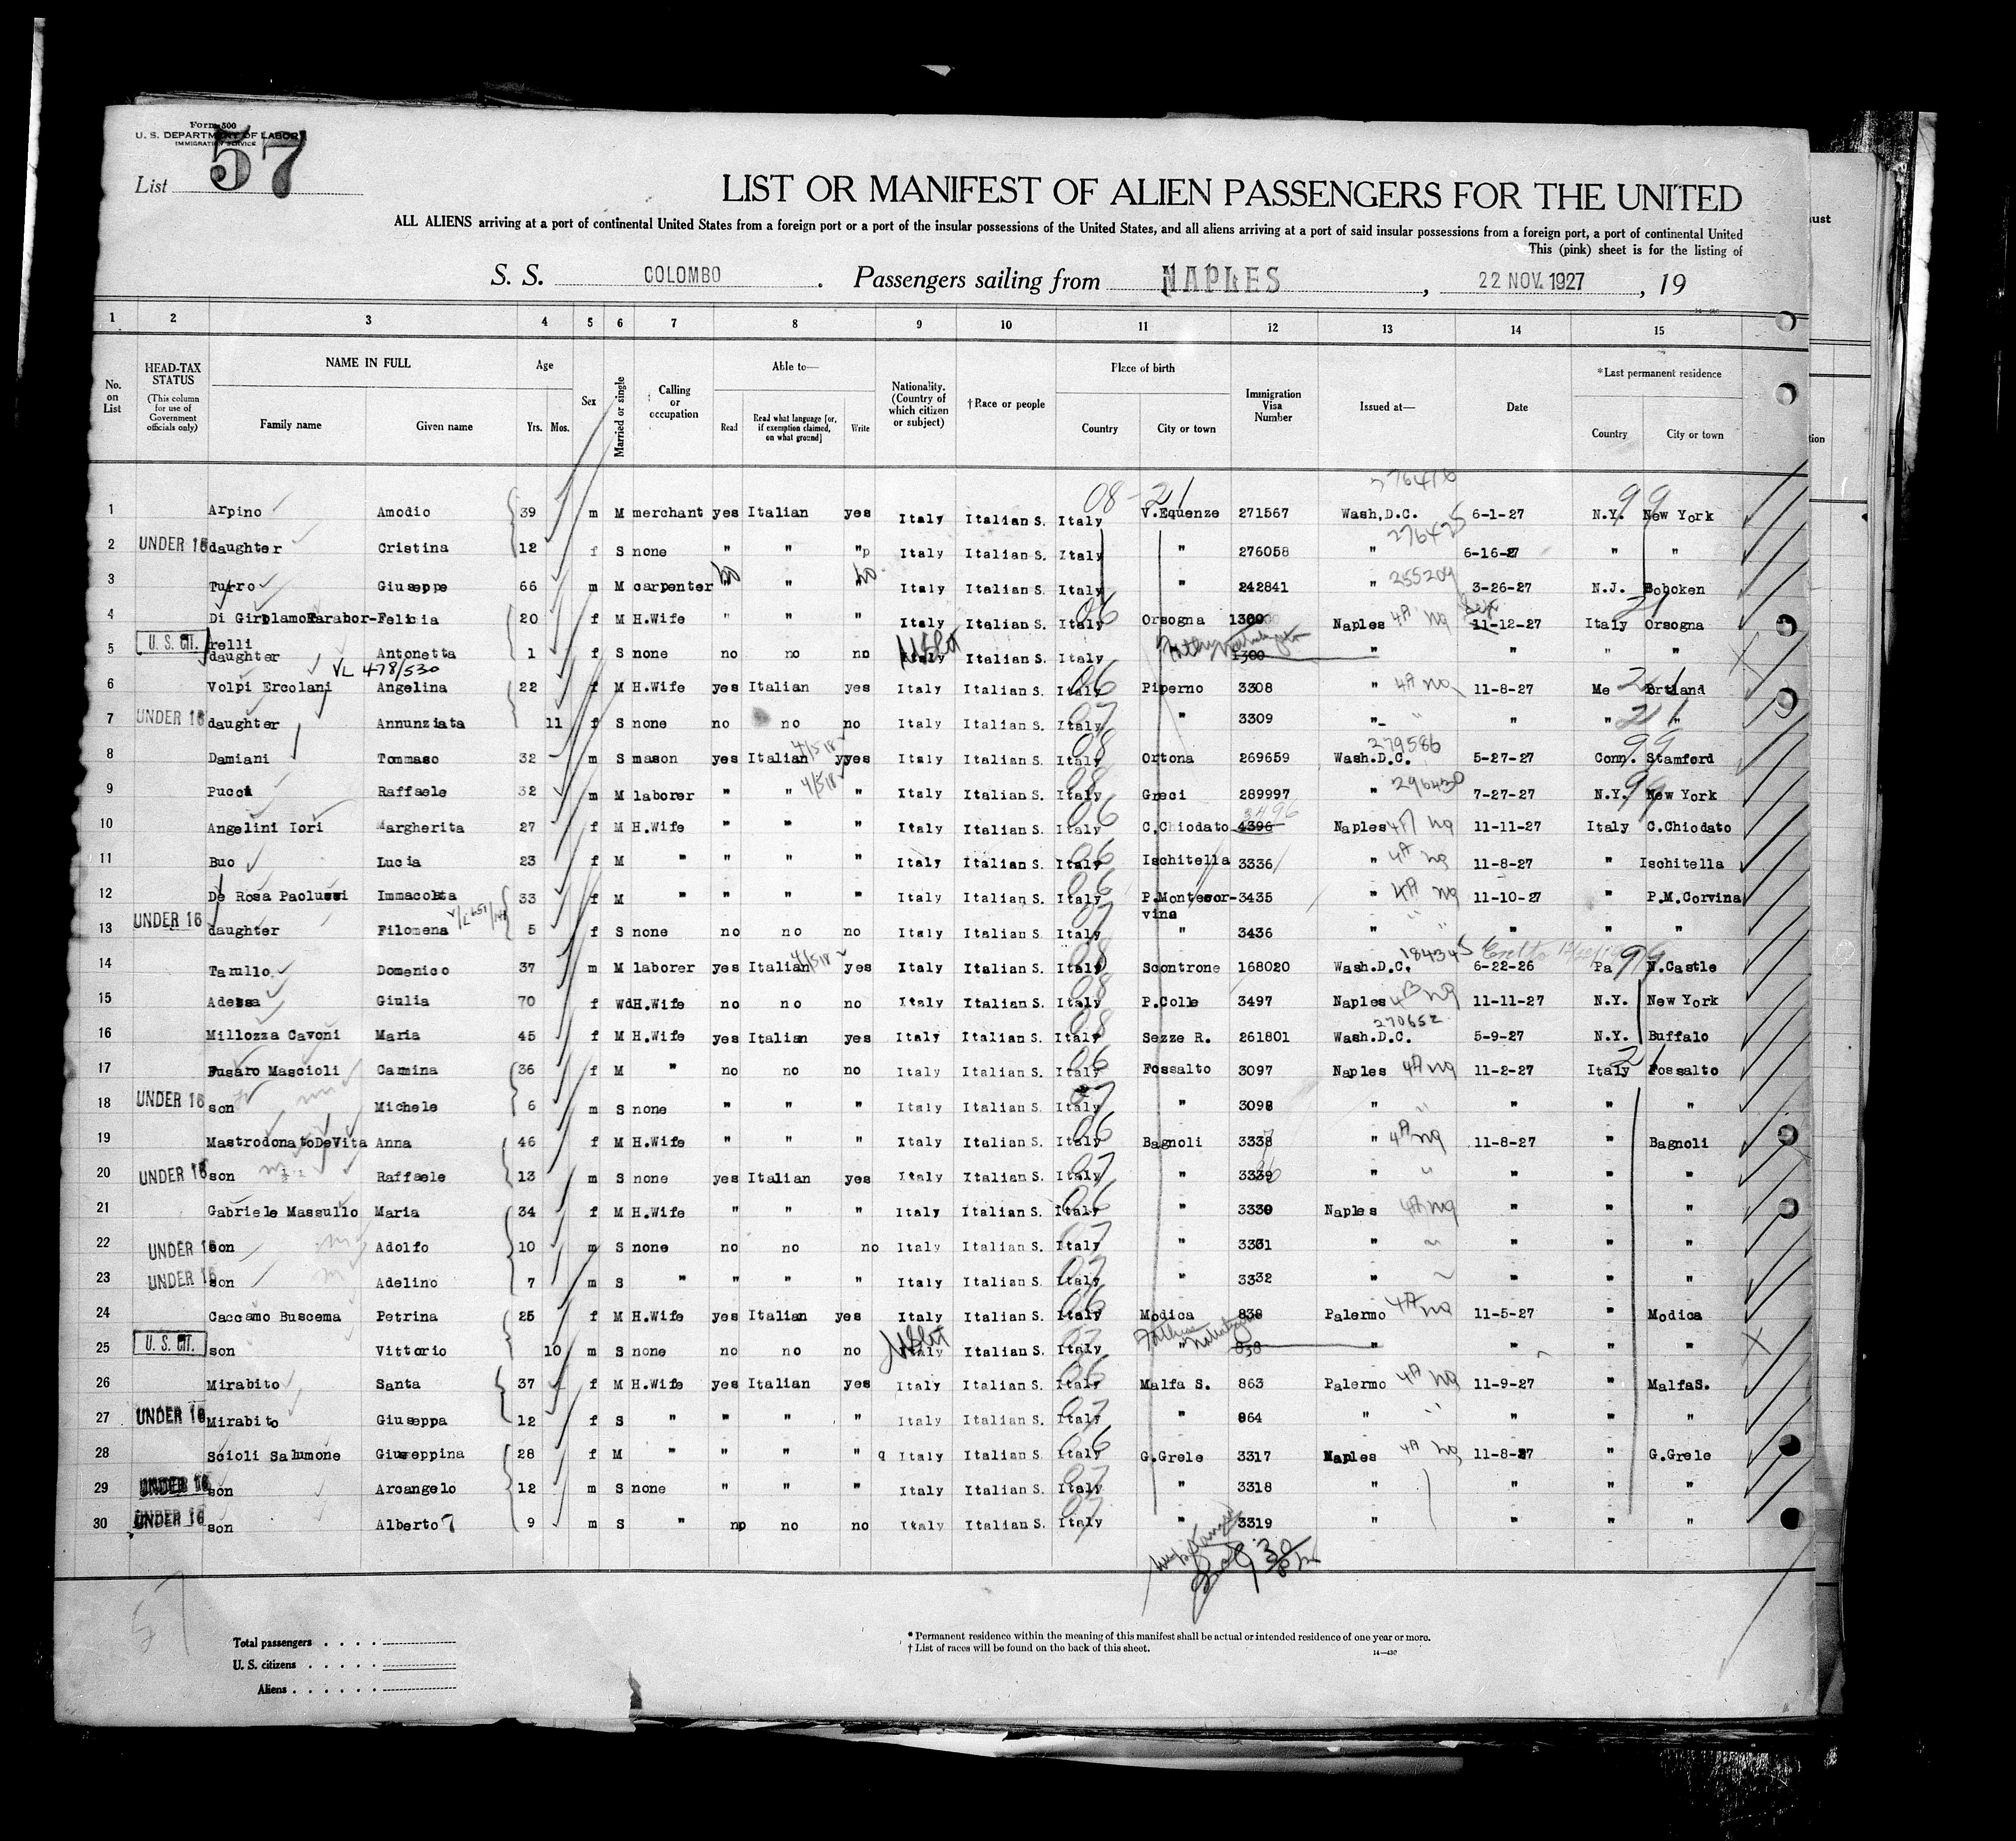 Form 500
U. S. DEPARTMENT OF LABOR
IMMIGRATION SERVICE
List 57
LIST OR MANIFEST OF ALIEN PASSENGERS FOR THE UNITED
ALL ALIENS arriving at a port of continental United States from a foreign port or a port of the insular possessions of the United States, and all aliens arriving at a port of said insular possessions from a foreign port, a port of continental United
This (pink) sheet is for the listing of
S. S. COLOMBO . Passengers sailing from NAPLES , 22 NOV. 1927 , 19
1 2 3 4 5 6 7 8 9 10 11 12 13 14 15
No. on List
HEAD-TAX STATUS (This column for use of Government officials only)
NAME IN FULL Family name Given name
Age Yrs. Mos.
Sex
Married or single
Calling or occupation
Able to— Read Read what language [or, if exemption claimed, on what ground] Write
Nationality. (Country of which citizen or subject)
†Race or people
Place of birth Country City or town
Immigration Visa Number
Issued at—
Date
*Last permanent residence Country City or town
276416
1 Arpino Amodio 39 m M merchant yes Italian yes Italy Italian S. Italy 08-21 V.Equenze 271567 Wash,D.C. 6-1-27 N.Y. 99 New York
2 UNDER 16 daughter Cristina 12 f S none " " "p Italy Italian S. Italy " 276058 " 276475 6-16-27 " "
3 Turro Giuseppe 66 m M carpenter no " no Italy Italian S. Italy " 242841 " 255209 3-26-27 N.J. Hoboken
4 Di GirolamoFarabor-Felicia 20 f M H.Wife " " " Italy Italian S. Italy 06 Orsogna 1300 Naples 4A nq 11-12-27 Italy Orsogna
relli
5 U. S. CIT. daughter Antonetta 1 f S none no no no Italy Italian S. Italy 1300 " " " "
VL 478/530
6 Volpi Ercolani Angelina 22 f M H.Wife yes Italian yes Italy Italian S. Italy 06 Piperno 3308 " 4A nq 11-8-27 Me 21 Portland
7 UNDER 16 daughter Annunziata 11 f S none no no no Italy Italian S. Italy 07 " 3309 " " " 21 "
8 Damiani Tommaso 32 m S mason yes Italian 4/518 yyes Italy Italian S. Italy 08 Ortona 269659 Wash.D.C. 279586 5-27-27 Conn. 99 Stamford
9 Pucci Raffaele 32 m M laborer " " 4/518 " Italy Italian S. Italy 08 Greci 289997 " 296430 7-27-27 N.Y. 99 New York
10 Angelini Iori Margherita 27 f M H.Wife " " " Italy Italian S. Italy 06 C.Chiodato 4396 3496 Naples 4A nq 11-11-27 Italy C.Chiodato
11 Buo Lucia 23 f M " " " " Italy Italian S. Italy 06 Ischitella 3336 " 4A nq 11-8-27 " Ischitella
12 De Rosa Paolussi Immacolata 33 f M " " " " Italy Italian S. Italy 06 P.Montecor- 3435 " 4A nq 11-10-27 " P.M.Corvina
vina
13 UNDER 16 daughter Filomena 5 f S none no no no Italy Italian S. Italy 07 " 3436 " " " "
14 Tarullo Domenico 37 m M laborer yes Italian 4/518 yes Italy Italian S. Italy 08 Scontrone 168020 Wash.D.C. 184345 6-22-26 Pa 99 N.Castle
15 Adessa Giulia 70 f Wd H.Wife no no no Italy Italian S. Italy 08 P.Colle 3497 Naples 4B nq 11-11-27 N.Y. New York
16 Millozza Cavoni Maria 45 f M H.Wife yes Italian yes Italy Italian S. Italy 08 Sezze R. 261801 Wash.D.C. 270652 5-9-27 N.Y. Buffalo
17 Fusaro Mascioli Carmina 36 f M " no no no Italy Italian S. Italy 06 Fossalto 3097 Naples 4A nq 11-2-27 Italy 21 Fossalto
18 UNDER 16 son Michele 6 m S none " " " Italy Italian S. Italy 07 " 3098 " " " "
19 MastrodonatoDeVita Anna 46 f M H.Wife " " " Italy Italian S. Italy 06 Bagnoli 3338 " 4A nq 11-8-27 " Bagnoli
20 UNDER 16 son Raffaele 13 m S none yes Italian yes Italy Italian S. Italy 07 " 3339 " " " "
21 Gabriele Massullo Maria 34 f M H.Wife " " " Italy Italian S. Italy 06 " 3330 Naples 4A nq " " "
22 UNDER 16 son Adolfo 10 m S none no no no Italy Italian S. Italy 07 " 3331 " " " "
23 UNDER 16 son Adelino 7 m S " " " " Italy Italian S. Italy 07 " 3332 " " " "
24 Caccamo Buscema Petrina 25 f M H.Wife yes Italian yes Italy Italian S. Italy 06 Modica 838 Palermo 4A nq 11-5-27 " Modica
25 U. S. CIT. son Vittorio 10 m S none no no no Italy Italian S. Italy 07 " 838 " " " "
26 Mirabito Santa 37 f M H.Wife yes Italian yes Italy Italian S. Italy 06 Malfa S. 863 Palermo 4A nq 11-9-27 " MalfaS.
27 UNDER 16 Mirabito Giuseppa 12 f S " " " " Italy Italian S. Italy 07 " 864 " " " "
28 Scioli Salumone Giuseppina 28 f M " " " " q Italy Italian S. Italy 06 G.Grele 3317 Naples 4A nq 11-8-27 " G.Grele
29 UNDER 16 son Arcangelo 12 m S none " " " Italy Italian S. Italy 07 " 3318 " " " "
30 UNDER 16 son Alberto 9 m S " no no no Italy Italian S. Italy 07 " 3319 " " " "
57
Total passengers . . . .
U. S. citizens . . . . .
Aliens . . . . . .
* Permanent residence within the meaning of this manifest shall be actual or intended residence of one year or more.
† List of races will be found on the back of this sheet.
14—430